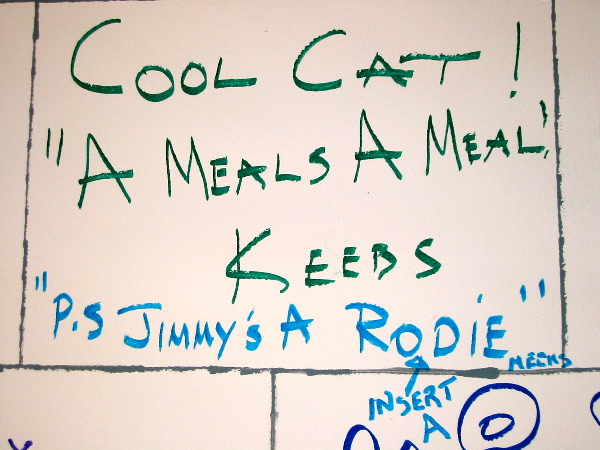 COOL CAT!
"A MEALS A MEAL!
KEEBS
"P.S JIMMY'S A RODIE"
MEEKS
INSERT
A